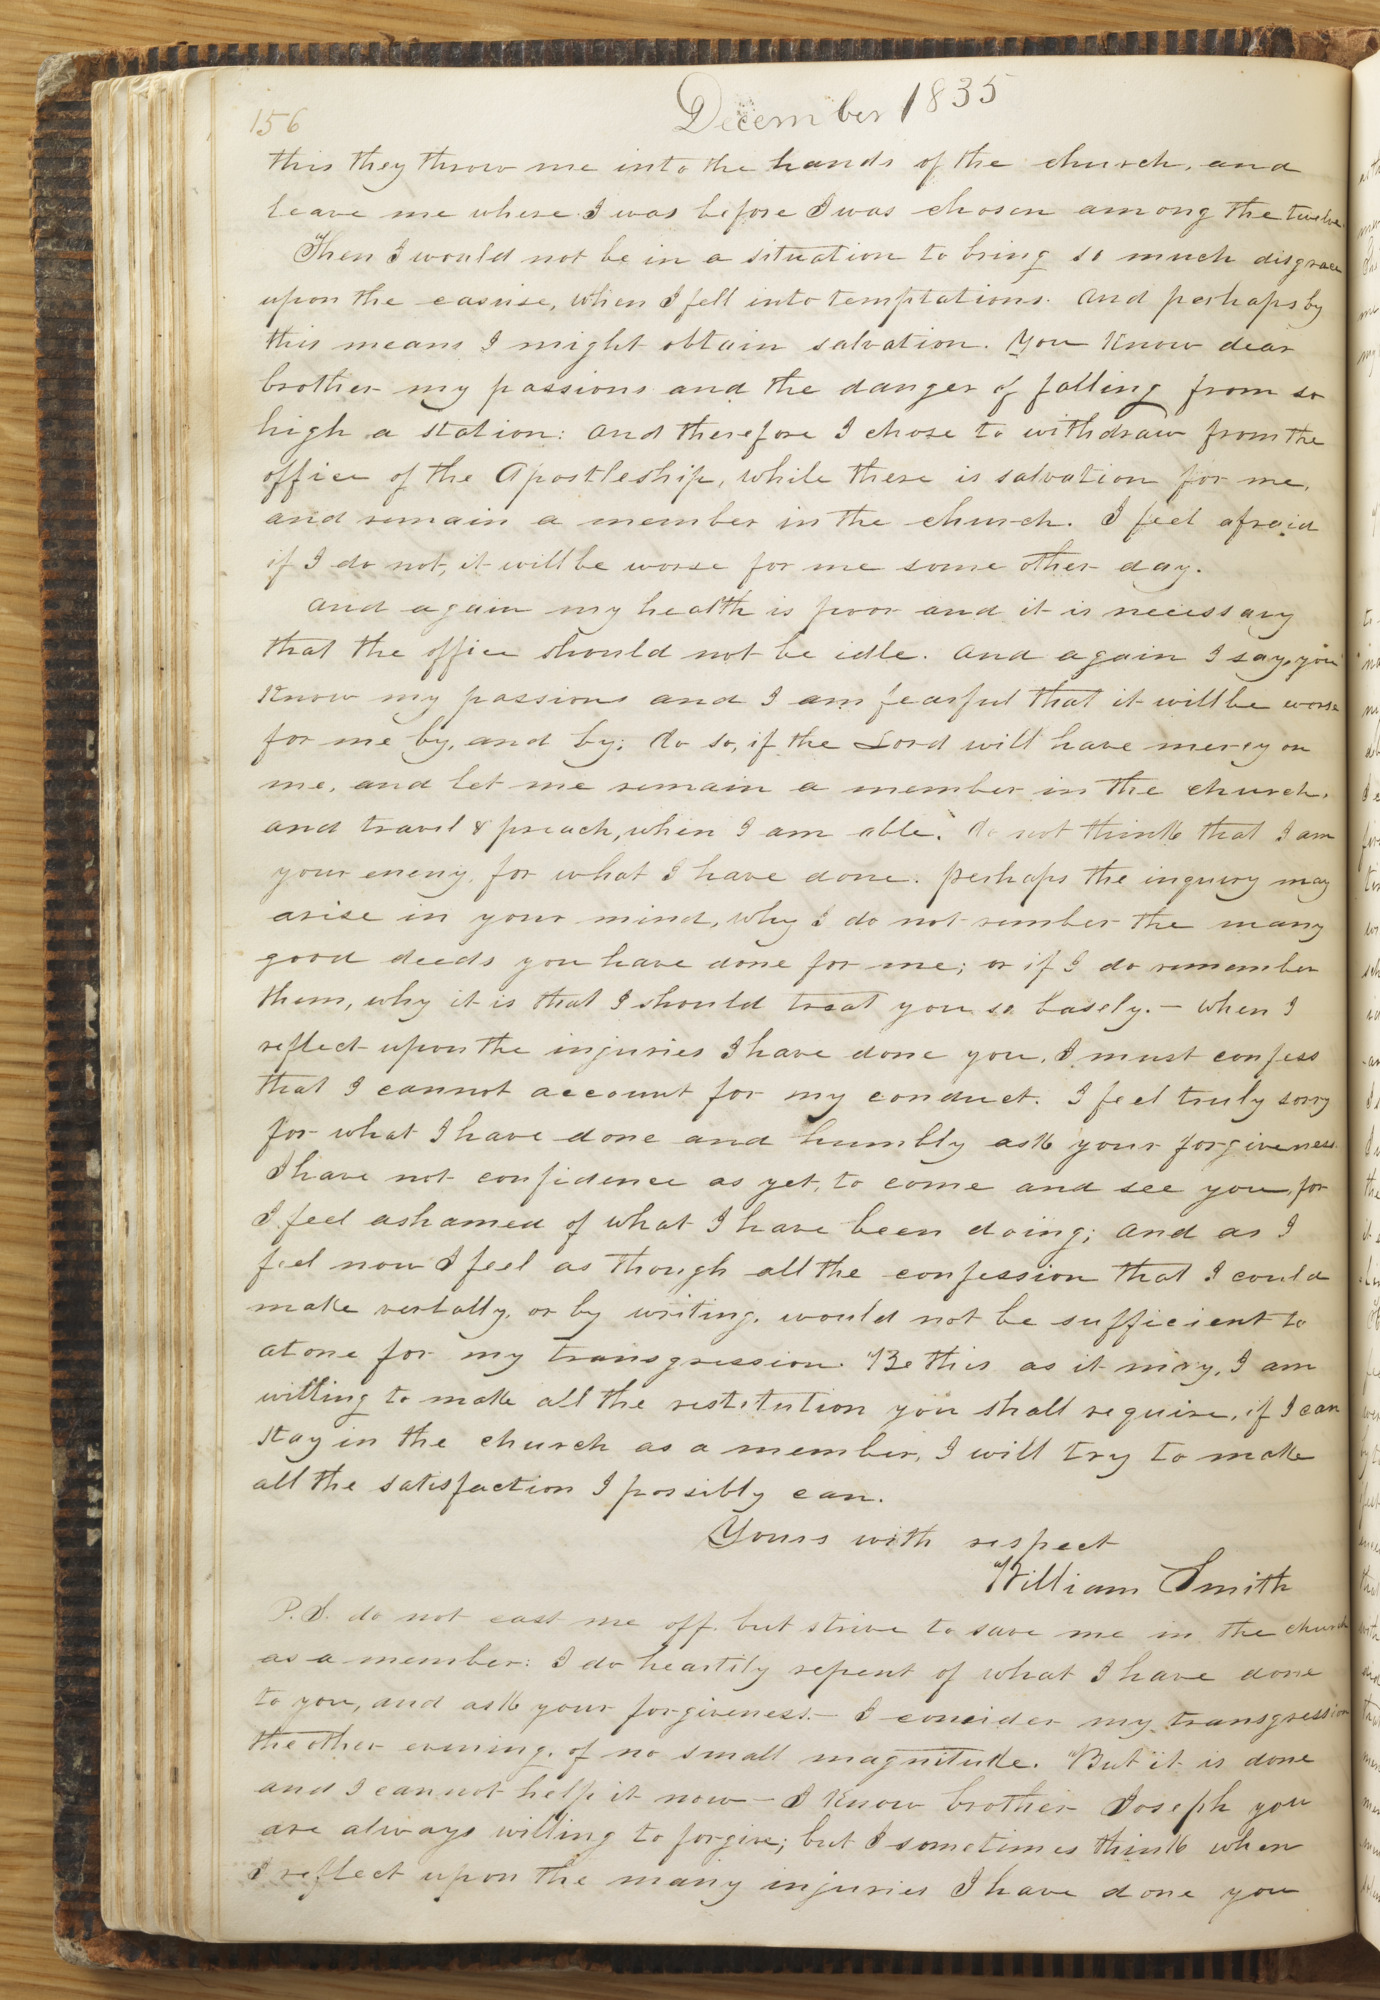 156
December 1835
this they throw me into the hands of the church, and
leave me where I was before I was chosen among the twelve.
Then I would not be in a situation to bring so much disgrace
upon the casuise, when I fell into temptations. And perhaps by
this means I might obtain salvation. You Know dear
brother my passions and the danger of falling from so
high a station: and therefore I chose to withdraw from the
office of the Apostleship, while there is salvation for me,
and remain a member in the church. I feel afraid
if I do not, it will be worse for me some other day.
And again my health is poor and it is necessary
that the office should not be idle. And again I say, you
Know my passions and I am fearful that it will be worse
for me by, and by; do so, if the Lord will have mercy on
me, and let me remain a member in the church,
and travel & preach, when I am able. do not think that I am
your enemy, for what I have done. Perhaps the inquiry may
arise in your mind, why I do not rember the many
good deeds you have done for me; or if I do remember
them, why it is that I should treat you so basely. — When I
reflect upon the injuries I have done you, I must confess
that I cannot account for my conduct. I feel truly sorry
for what I have done and humbly ask your forgiveness.
I have not confidence as yet, to come and see you, for
I feel ashamed of what I have been doing; and as I
feel now I feel as though all the confession that I could
make verbally, or by writing, would not be sufficient to
atone for my transgression. Be this as it may, I am
willing to make all the restitution you shall require, if I can
stay in the church as a member, I will try to make
all the satisfaction I possibly can.
Yours with respect
William Smith
P.S. do not cast me off but strive to save me in the church
as a member: I do heartily repent of what I have done
to you, and ask your forgiveness — I concider my transgression
the other evening, of no small magnitude. But it is done
and I cannot help it now — I Know brother Joseph you
are always willing to forgive; but I sometimes think when
I reflect upon the many injuries I have done you